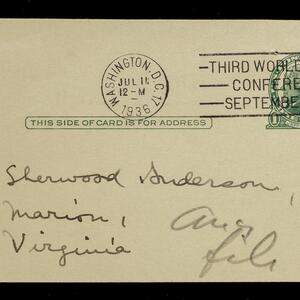 WASHINGTON, D.C. 17
JUL 11
12-M
1936
THIRD WORLD
CONFERE
SEPTEMBE
THIS SIDE OF CARD IS FOR ADDRESS
Sherwood Anderson,
Marion,
Virginia
file